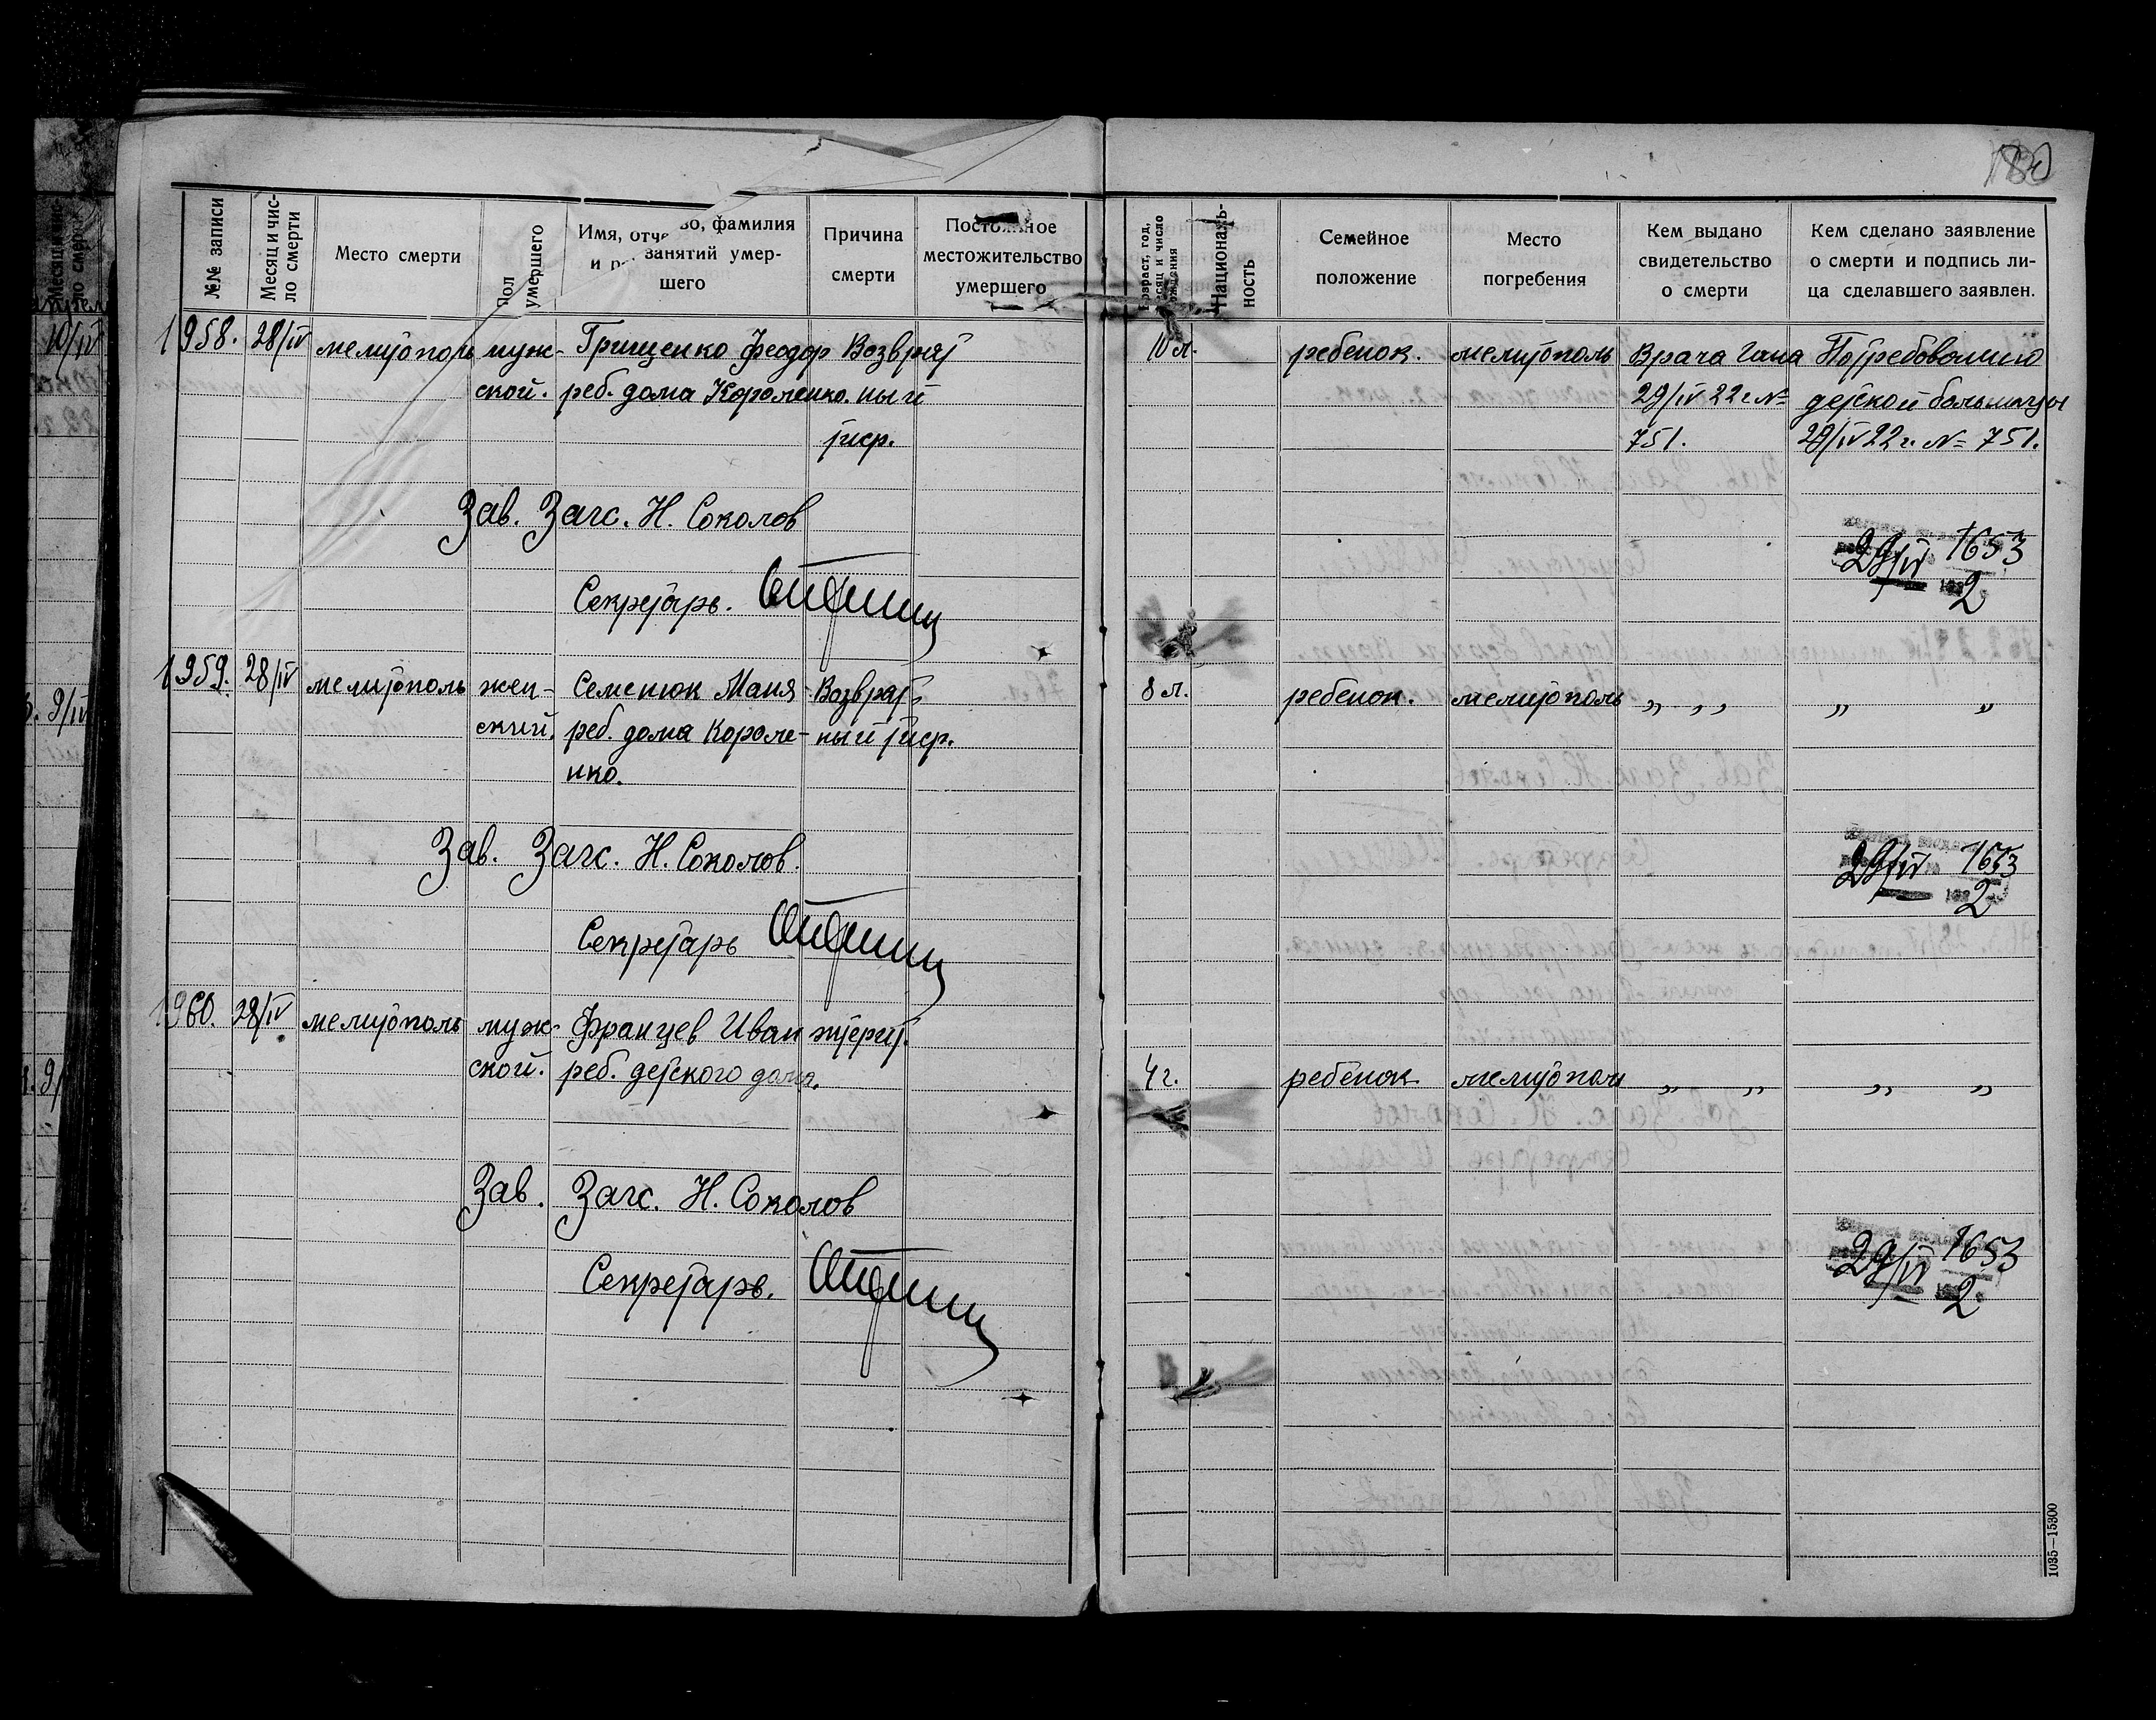 180
№№ записи
Месяц и чис-
ло смерти
Место смерти
Пол
умершего
Имя, отче во, фамилия
и р занятий умер-
шего
Причина
смерти
Постоянное
местожительство
умершего
Возраст, год,
месяц и число
рождения
Националь-
ность
Семейное
положение
Место
погребения
Кем выдано
свидетельство
о смерти
Кем сделано заявление
о смерти и подпись ли-
ца сделавшего заявлен.
1958. 28/IV мелитополь муж- Грищенко Феодор Возврат 10 л. ребенок. мелитополь Врача Гана По требованию
ской. реб. дома Короленко. ный 29/IV 22 г. № детской больницы
тиф. 751. 29/IV 22 г. № 751.
Зав. Загс. Н. Соколов
29/IV 1653
2
Секретарь.
1959. 28/IV мелитополь жен- Семенюк Маня Возврат- 8 л. ребенок. мелитополь „ „ „ „
ский. реб. дома Короле- ный тиф.
нко.
Зав. Загс. Н. Соколов.
29/IV 1653
2
Секретарь
1960. 28/IV мелитополь муж- Францев Иван
ской. реб. детского дома. 4 г. ребенок мелитополь „ „ „ „
Зав. Загс. Н. Соколов
29/IV 1653
2
Секретарь.
1035—15300
Месяц и чис-
ло смерти
10/IV
9/IV